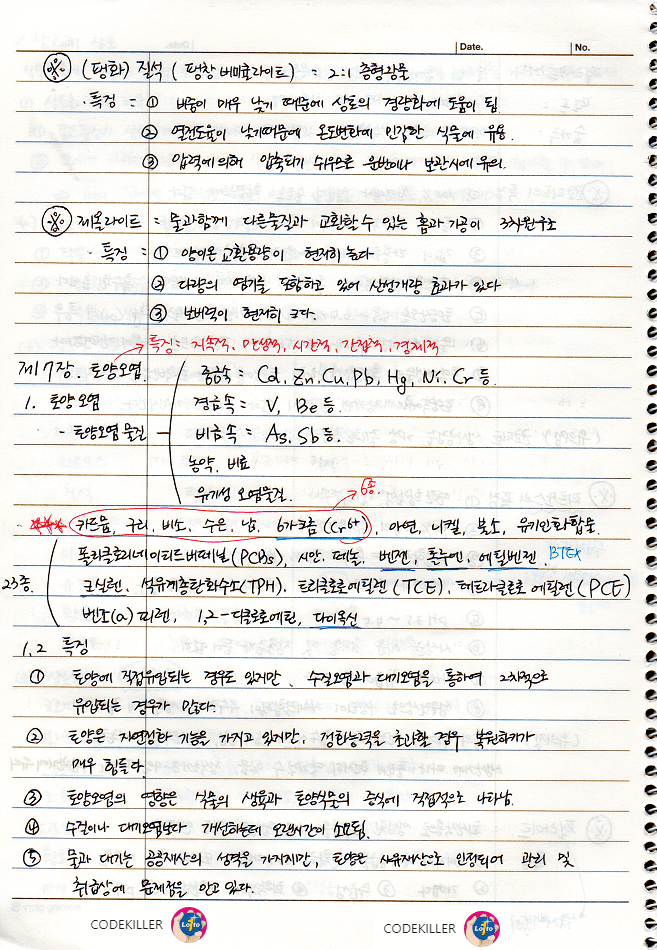 Date.
No.
※ (팽화) 질석 ( 팽창 버미큐라이트) = 2:1 층형광물
· 특징 = ① 비중이 매우 낮기 때문에 상토의 경량화에 도움이 됨
② 열전도율이 낮기때문에 온도변화에 민감한 식물에 유용
③ 압력에 의해 압축되기 쉬우므로 운반이나 보관시에 유의.
※ 제올라이트 = 물과함께 다른물질과 교환할수 있는 홈과 기공이 3차원구조
· 특징 = ① 양이온 교환용량이 현저히 높다
② 다량의 염기를 포함하고 있어 산성개량 효과가 있다
③ 보비력이 현저히 크다.
특징 = 지속적, 만성적, 시간적, 간접적, 경제적
제17장. 토양오염.
중금속 = Cd, Zn, Cu, Pb, Hg, Ni, Cr 등.
1. 토양오염
경금속 = V, Be 등.
- 토양오염물질
비금속 = As, Sb 등.
농약, 비료
유기성 오염물질.
6종.
카드뮴, 구리, 비소, 수은, 납, 6가크롬(Cr6+), 아연, 니켈, 불소, 유기인화합물.
폴리클로리네이티드비페닐(PCBs), 시안, 페놀, 벤젠, 톨루엔, 에틸벤젠. BTEX
23종.
크실렌, 석유계총탄화수소(TPH). 트리클로로에틸렌(TCE), 테트라클로로에틸렌(PCE)
벤조(a)피렌, 1,2-디클로로에탄, 다이옥신
1.2 특징
① 토양에 직접유입되는 경우도 있지만, 수질오염과 대기오염을 통하여 2차적으로
유입되는 경우가 많다.
② 토양은 자연정화 기능을 가지고 있지만, 정화능력을 초과할 경우 복원하기가
매우 힘들다.
③ 토양오염의 영향은 식물의 생육과 토양식물의 증식에 직접적으로 나타남.
④ 수질이나 대기오염보다 개선하는데 오랜시간이 소요됨.
⑤ 물과 대기는 공공재산의 성격을 가지지만, 토양은 사유재산으로 인정되어 관리 및
취급상에 문제점을 안고있다.
CODEKILLER Lotto
CODEKILLER Lotto